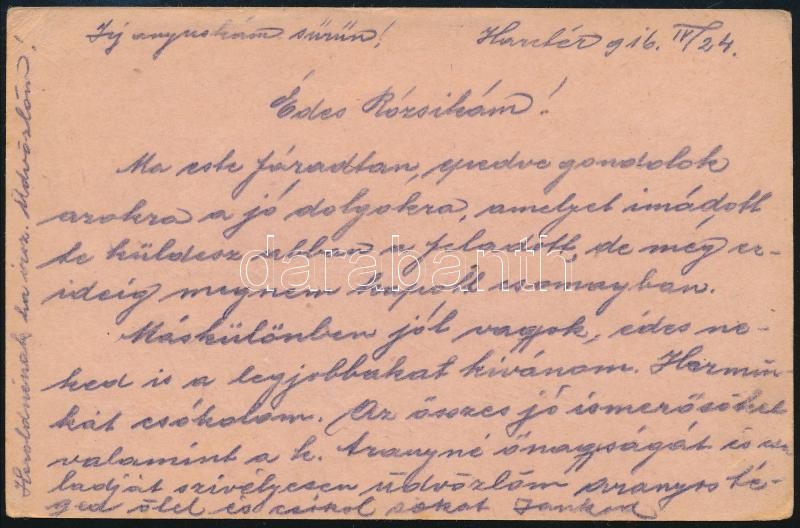 Írj anyuskám sürün!
Harctér 916. IV/24.
Édes Rózsikám!
Ma este fáradtan, epedve gondolok
azokra a jó dolgokra, amelyet imádott
te küldesz abban a feladott, de még ez-
ideig megnem kapott csomagban.
Máskülönben jól vagok, édes ne-
ked is a legjobbakat kívánom. Hermin-
kát csókolom. Az összes jó ismerősöket
valamint a k. Aranyné őnagságát és csa
ladját szivélyesen üdvözlöm aranyos té-
ged ölel és csókol sokat Jankod
ha üdvözlöm!
darabanth